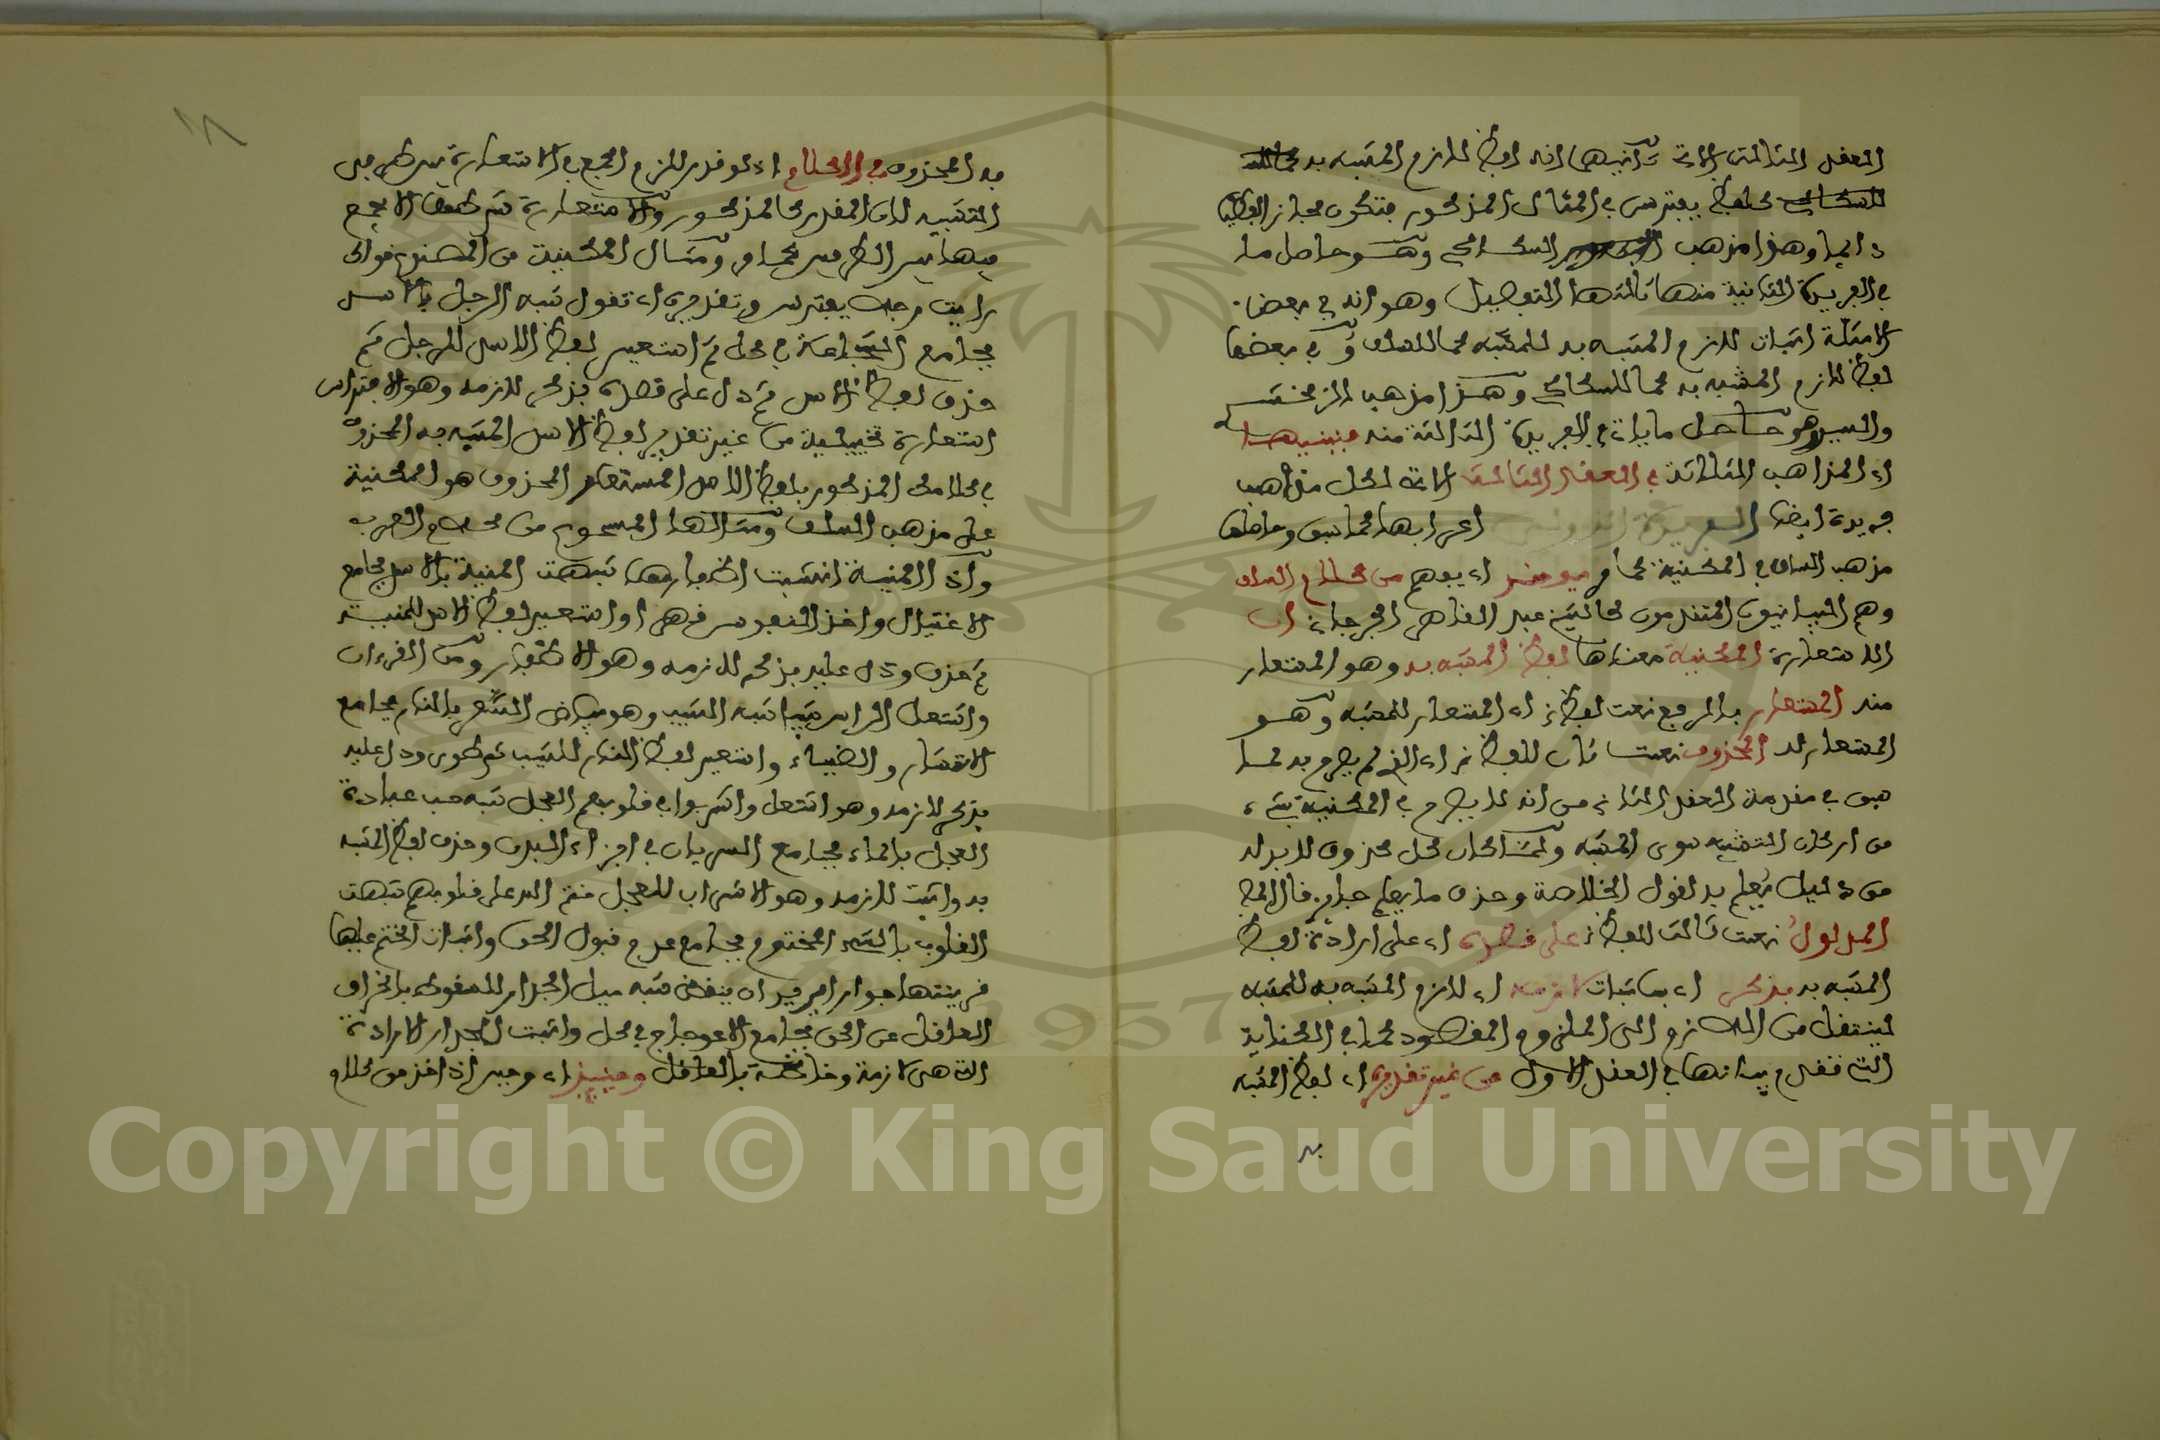 العقد الثالث الاتي ثانيهما انه لفظ لازم المشبه به
كلفظ يفترس في المثال المذكور فتكون مجاز
دائما وهذا مذهب السكاكي وهو حاصل ما
في الفريدة الثانية منها ثالثها التفصيل وهو انه في بعض
الامثلة اثبات لازم المشبه به للمشبه كما للسلف وفي بعضها
لفظ لازم المشبه به كما للسكاكي وهذا مذهب الزمخشري
والسيد وهو حاصل ما ياتي في الفريدة الثالثة منه
اي المذاهب الثلاثة في العقد الثالث الاتي لكل مذهب
فريدة ايضا الفريدة الاولى اعرابها كما سبق وحاصلها
مذهب السلف في المكنية كما اي يفهم من كلام السلف
وهم البيانيون المتقدمون كالشيخ عبد القاهر الجرجاني ان
الاستعارة المكنية معناها لفظ المشبه به وهو المستعار
منه المستعار بالرفع نعت لفظ اي المستعار للمشبه وهو
المستعار له المحذوف نعت ثان للفظ اي الذي لم يصرح به لما
سبق في مقدمة العقد الثاني من انه لا يصرح في المكنية بشيء
من اركان التشبيه سوى المشبه ولما كان كل محذوف لا بد له
من دليل يعلم به لقول الخلاصة وحذف ما يعلم جايز قال
المدلول نعت ثالث للفظ على قصده اي على ارادة لفظ
المشبه به بذكر اي باثبات لازمه اي لازم المشبه به للمشبه
لينتقل من اللازم الى الملزوم المقصود كما في الكناية
التي تقدم بيانها في العقد الاول من غير تقديره اي لفظ المشبه
به
به المحذوف في الكلام اي لو قدر للزم الجمع في الاستعارة بين طرفي
التشبيه لان المقدر كالمذكور والاستعارة شرطها الا يجمع
فيها بين الطرفين كما مر ومثال المكنية من المصنوع قولك
رايت رجلا يفترس وتقديره ان تقول شبه الرجل بالاسد
بجامع الشجاعة في كل ثم استعير لفظ الاسد للرجل ثم
حذف لفظ الاسد ثم دل على قصده بذكر لازمه وهو الافتراس
استعارة تخييلية من غير تقدير لفظ الاسد المشبه به المحذوف
في كلامك المذكور بلفظ الاسد المستعار المحذوف هو المكنية
على مذهب السلف ومثالها المسموع من كلام العرب
واذا المنية انشبت اظفارها شبهت المنية بالاسد بجامع
الاغتيال واخذ النفوس قهرا واستعير لفظ الاسد للمنية
ثم حذف ودل عليه بذكر لازمه وهو الاظفار ومن القرءان
واشتعل الراس شيبا شبه الشيب وهو بياض الشعر بالنار بجامع
الانتشار والضياء واستعير لفظ النار للشيب ثم طوى ودل عليه
بذكر لازمه وهو اشتعل واشربوا في قلوبهم العجل شبه حب عبادة
العجل بالماء بجامع السريان في اجزاء البدن وحذف لفظ المشبه
به واثبت لازمه وهو الاشراب للعجل ختم الله على قلوبهم شبهت
القلوب بالشيء المختوم بجامع عدم قبول الحق واثبات الختم عليها
قرينتها جدارا يريد ان ينقض شبه ميل الجدار للسقوط بانحراف
العاقل عن الحق بجامع الاعوجاج في كل واثبت للجدار الارادة
التي هي لازمة وخاصة بالعاقل وحينئذ اي وحين اذ اخذ من كلام
Copyright © King Saud University
1957
١٨